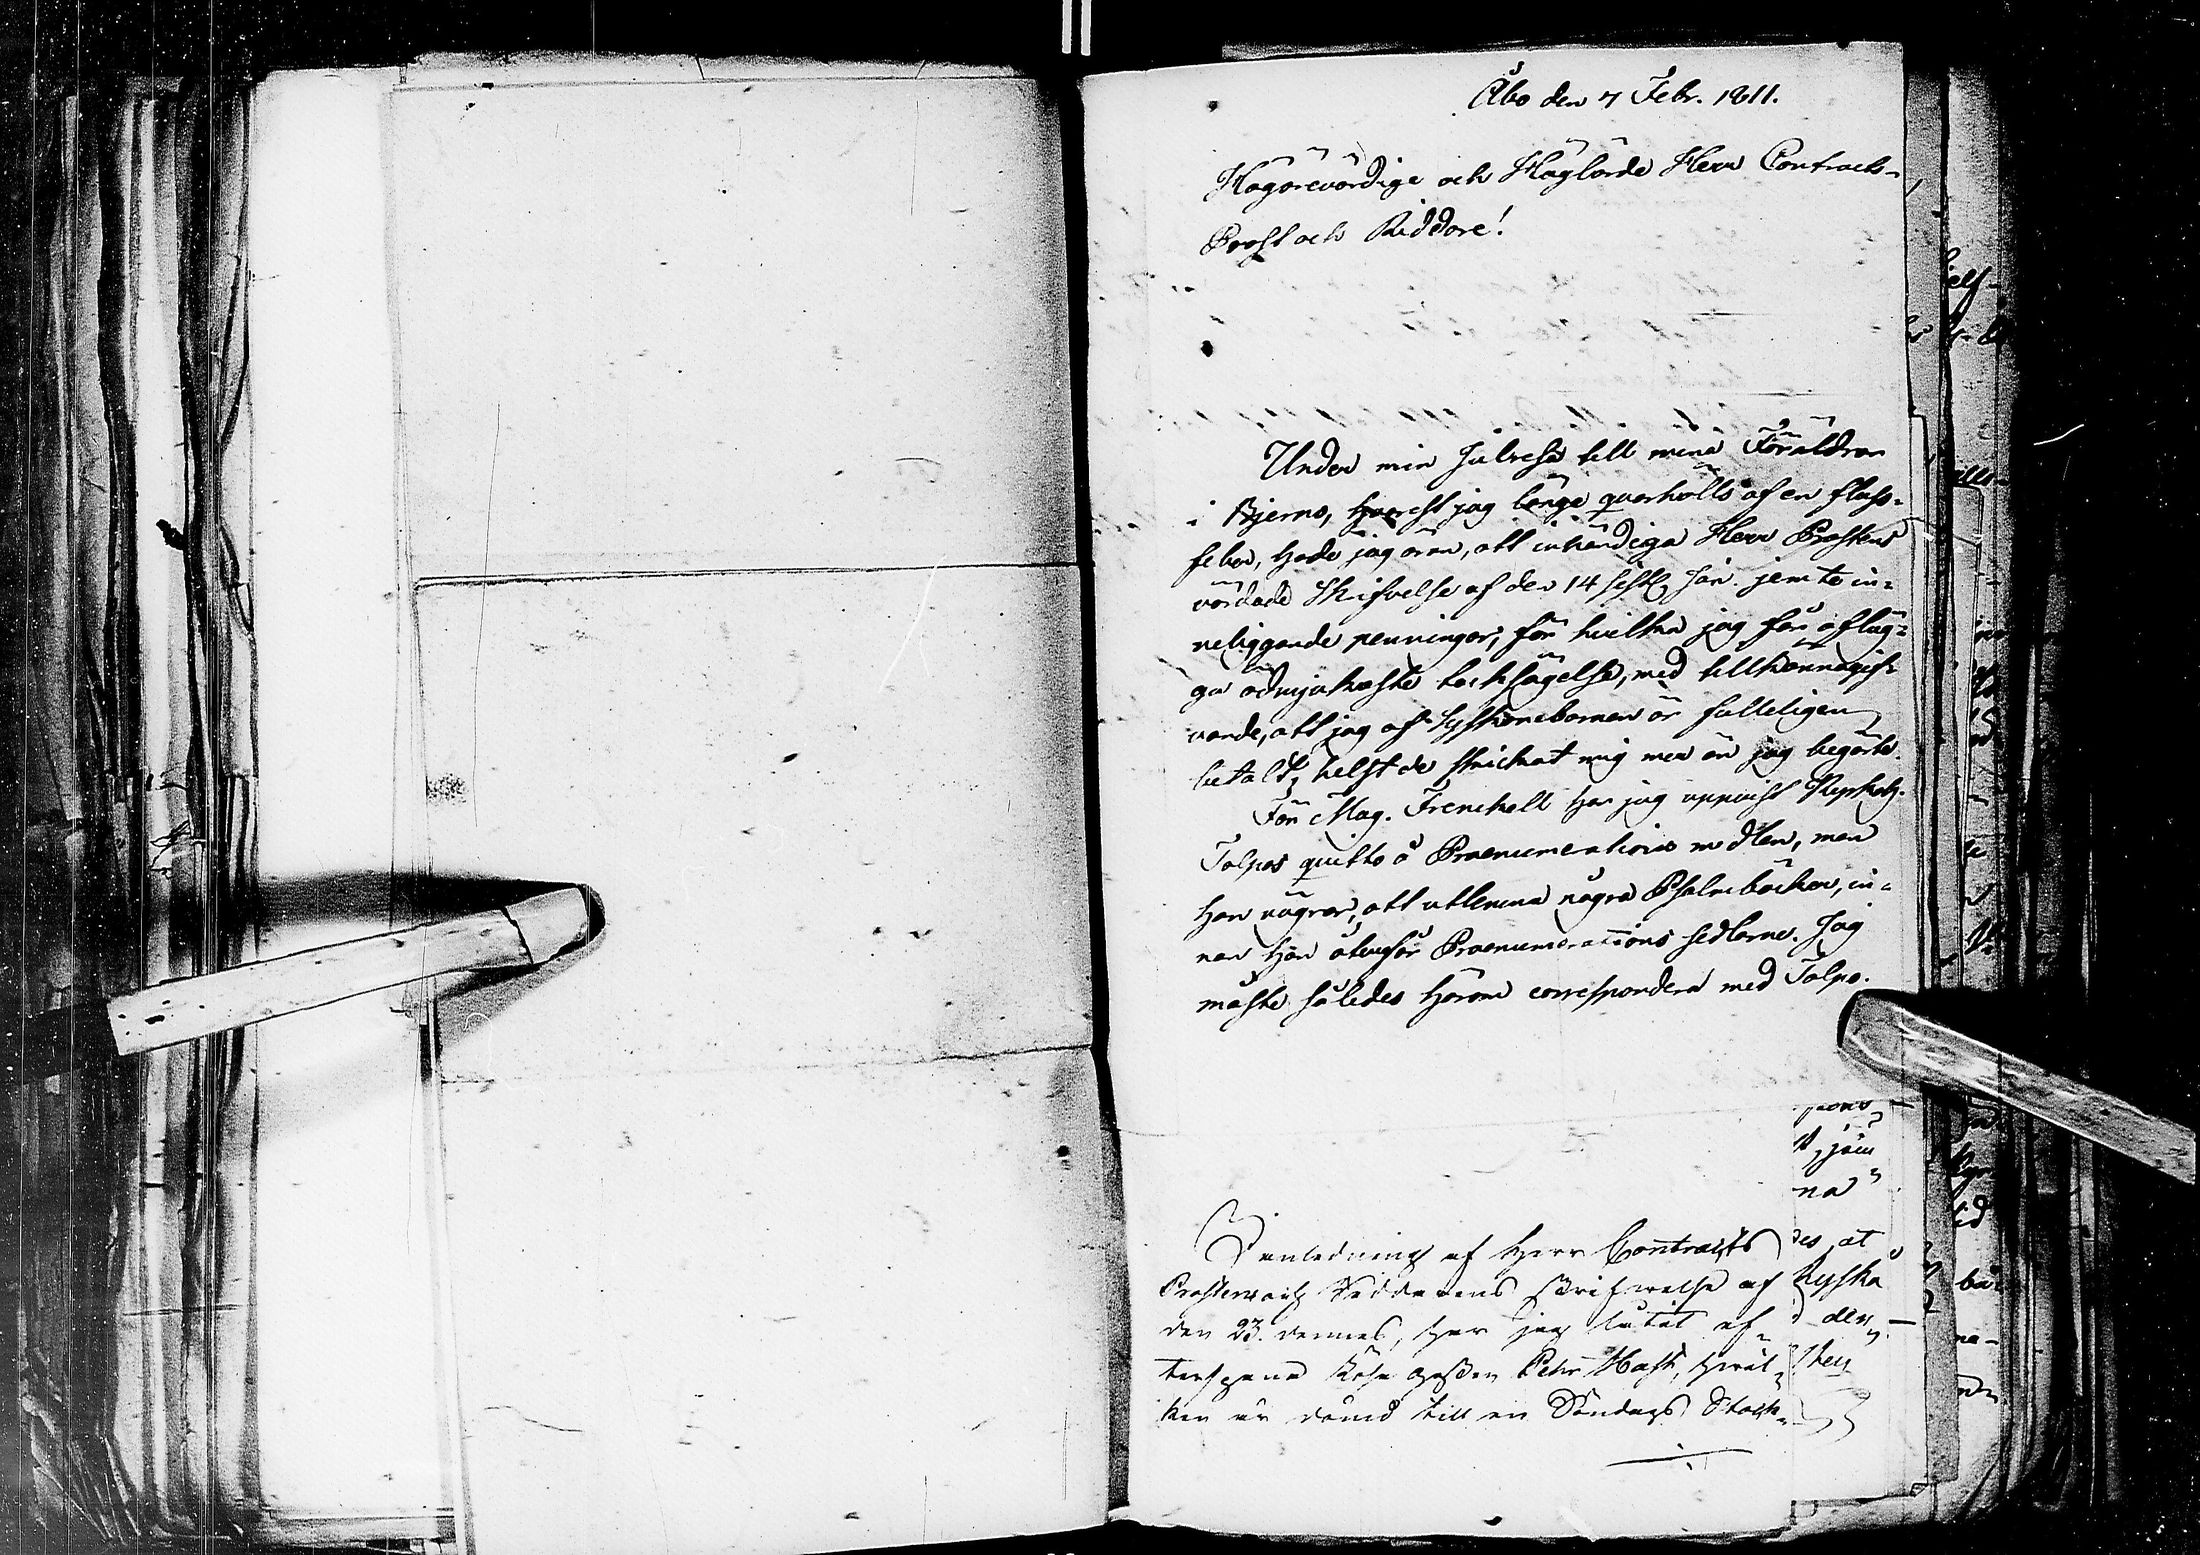 Åbo den 7 Febr. 1811.
Högärevördige och Höglärde Herr Contracts-
Prost och Riddare!
Under min Julresa till mina Föräldrar
i Bjerno, hvarest jag länge qvarhölls af en fluss-
feber, hade jag äran, att inhändiga Herr Prostens
vördade Skrifvelse af den 14 sistl. Jan. jemte in-
neliggande penningar, för hvilka jag får afläg-
ga ödmjukaste tacksägelse, med tillkännagif-
vande, att jag af Syskonebarnen är fulleligen
betald, helst de skickat mig mer än jag begärte.
För Mag. Frenckell har jag uppvist
Talpos quitto å Praenumerations medlen, men
han vägrar, att utlemna några Psalmböcker, in-
nan han återfår Praenumerations sedlarne. Jag
måste således härom correspondera med Talpo.
na
I anledning af Herr Contracts
Prostens och Riddarens skrifvelse af
den 23. dennes, har jag låtit ef-
terspana Pehr Hast, hvil-
ken är dömd till en Söndags Stock-
des at
Ryska
den